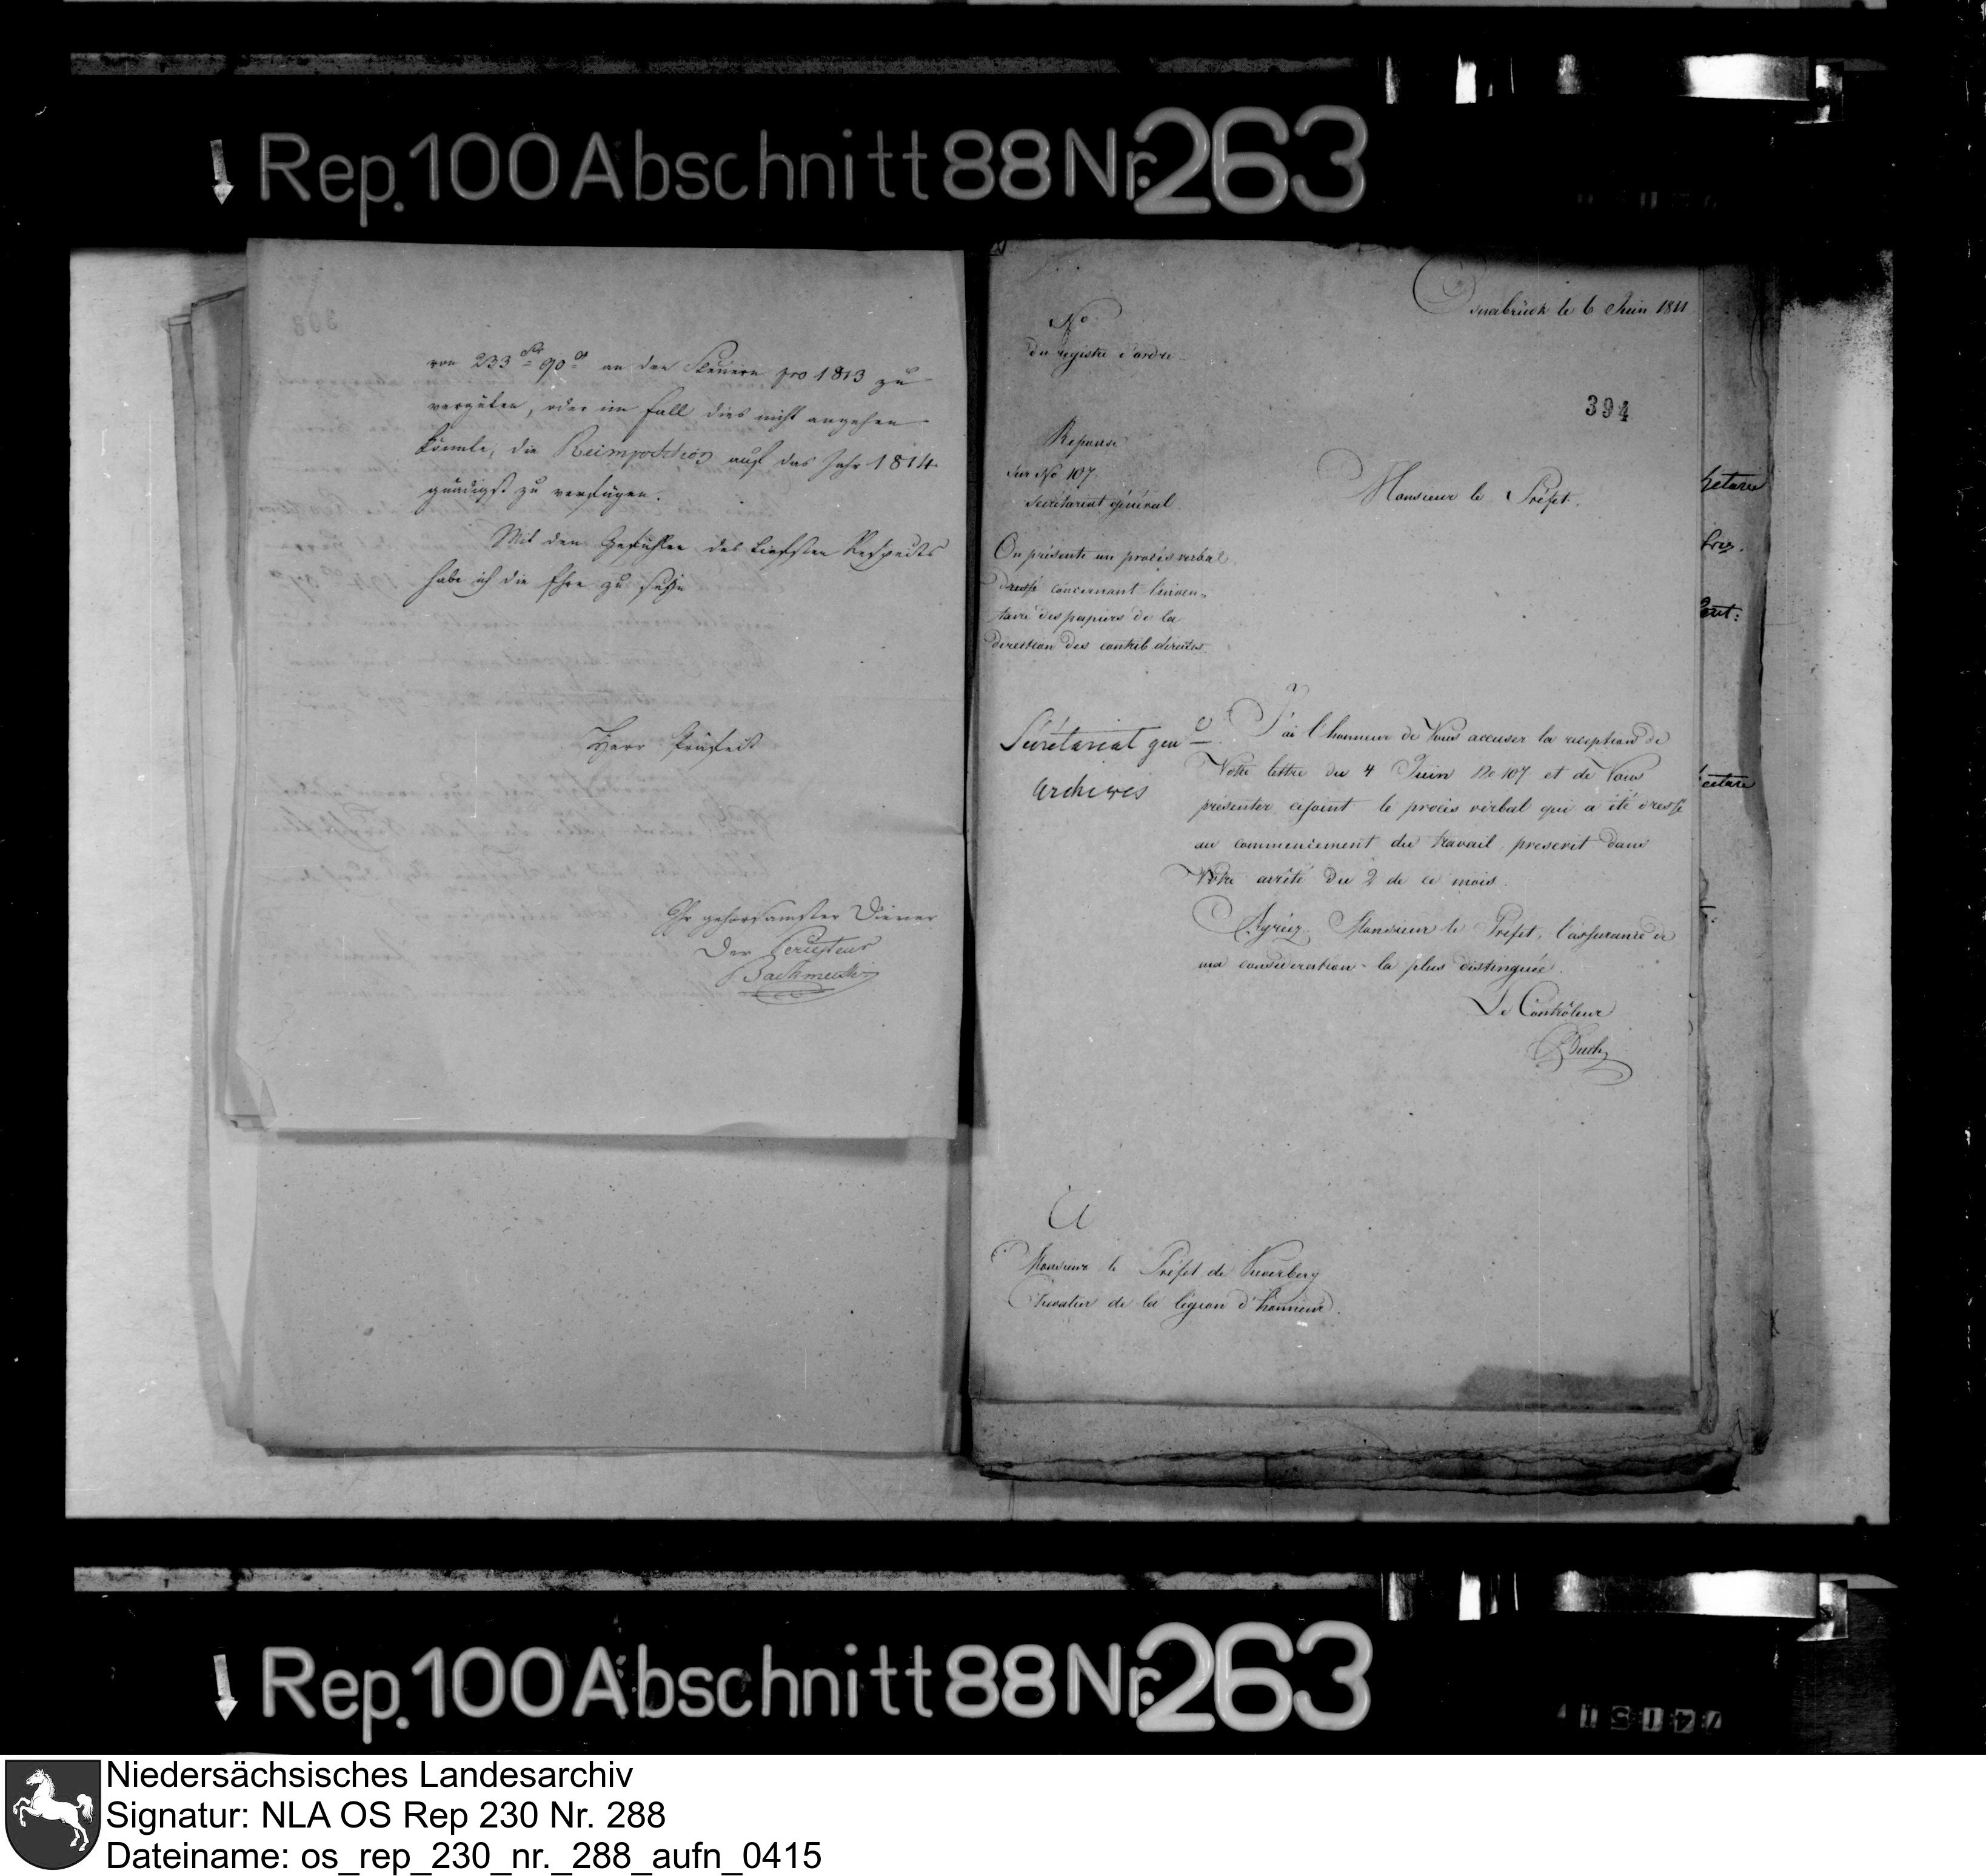 Rep. 100 Abschnitt 88 Nr. 263
von 233 Fr 90 Cs an den Steuern pro 1813 zu
vergüten, oder im Fall dies nicht angehen
könnte, die Reimposition auf das Jahr 1814
gnädigst zu verfügen.
Mit den Gefühlen des tiefsten Respects
habe ich die Ehre zu seyn
Herr Präfect
Ihr gehorsamster Diener
Der Percepteur
Osnabrück le 6 Juin 1811
No
du registre d'ordre
394
Reponse
sur No 107
secrétariat général
On présente un procès verbal
dressé concernant l'inven-
taire des papiers de la
direction des contrib. directes
Monsieur le Préfet.
Sécrétariat genl
archives
J'ai l'honneur de Vous accuser la reception de
Votre lettre du 4 Juin No 107 et de Vous
présenter cijoint le procès verbal qui a été dressé
au commencement du travail prescrit dans
Votre arrêté du 2 de ce mois.
Agréez Monsieur le Préfet, l'assurance de
ma considération la plus distinguée.
Le Contrôleur
Buch
A
Monsieur le Préfet de Keverberg
Chevalier de la légion d'honneur.
Rep. 100 Abschnitt 88 Nr. 263
Niedersächsisches Landesarchiv
Signatur: NLA OS Rep 230 Nr. 288
Dateiname: os_rep_230_nr._288_aufn_0415